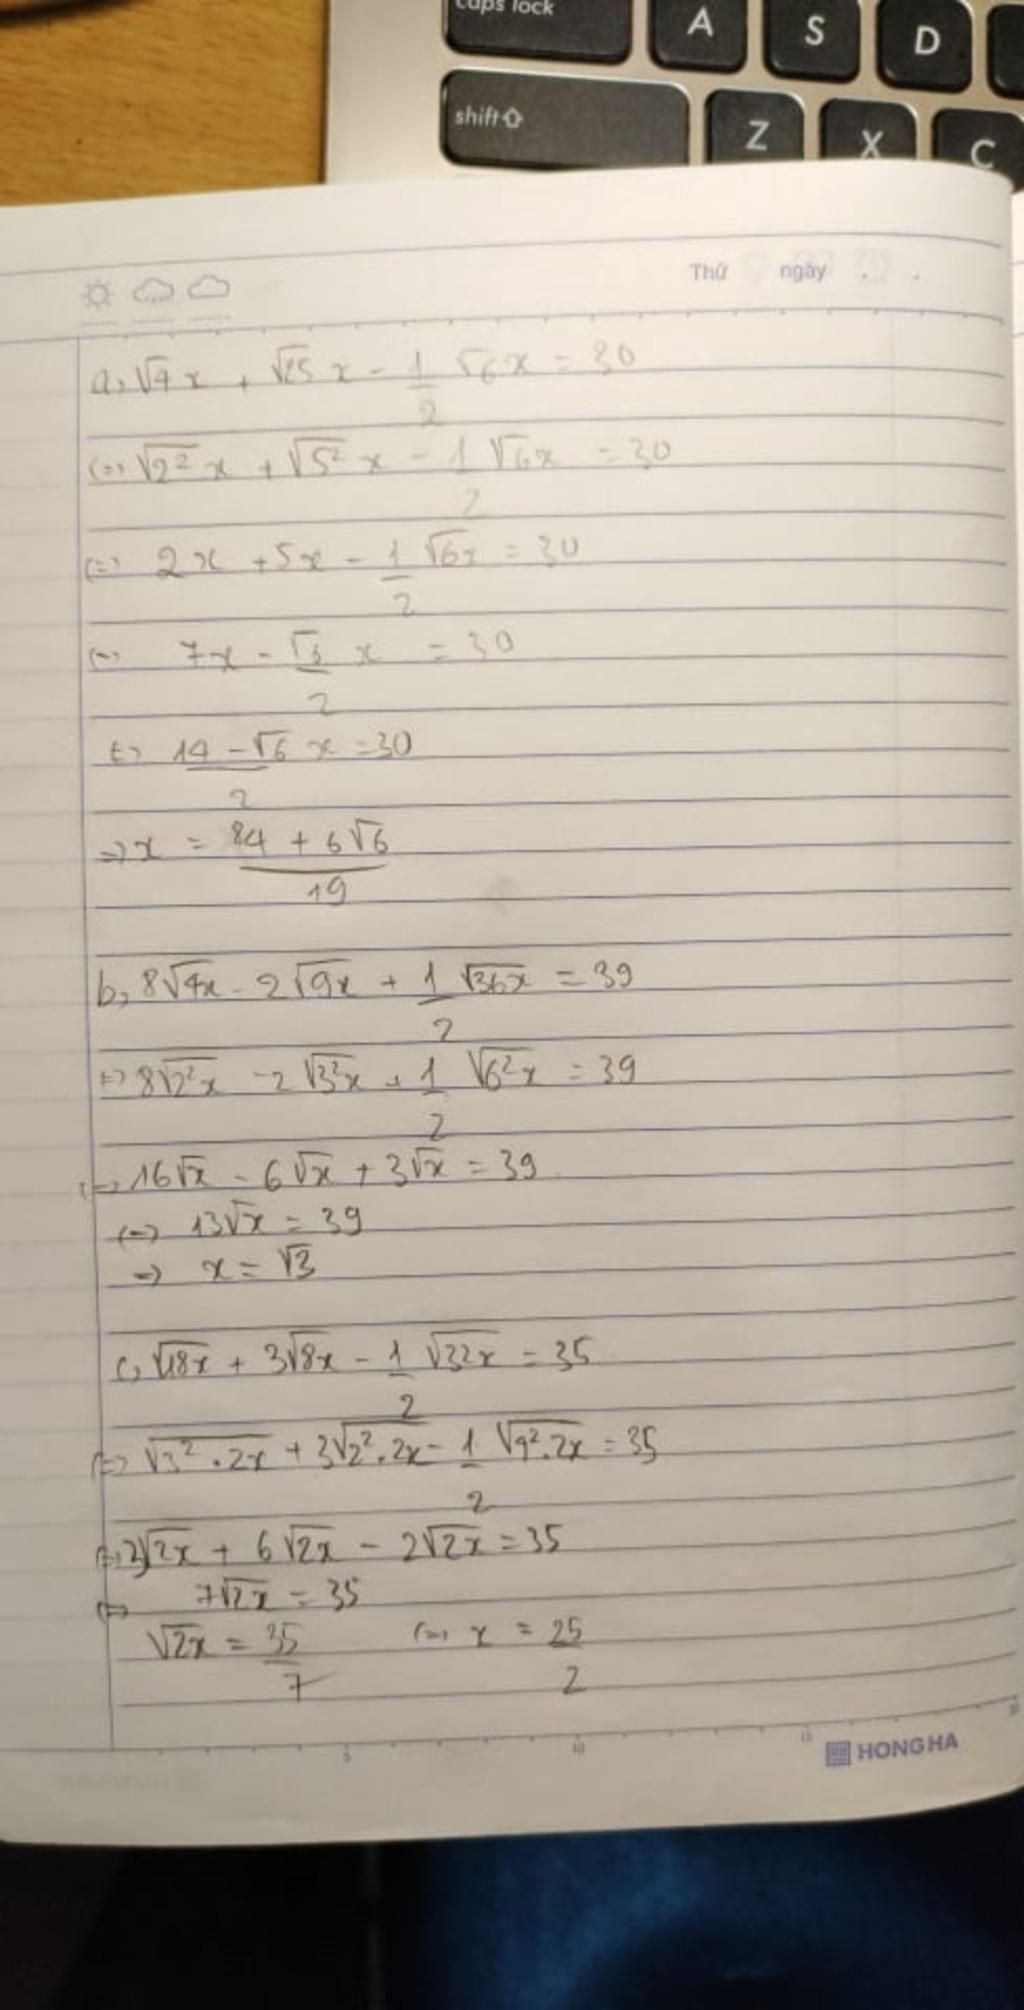 caps lock A S D
shift⇧ Z X C
Thứ ngày . .
a, √4 x + √25 x - 1/2 √6 x = 30
(=) √2² x + √5² x - 1/2 √6x = 30
(=) 2x + 5x - 1/2 √6x = 30
(=) 7x - √6/2 x = 30
(=) 14 - √6/2 x = 30
=> x = 84 + 6√6/19
b, 8√4x - 2√9x + 1/2 √36x = 39
(=) 8√2²x - 2√3²x + 1/2 √6²x = 39
(=) 16√x - 6√x + 3√x = 39
(=) 13√x = 39
=> x = √3
c, √18x + 3√8x - 1/2 √32x = 35
(=) √3².2x + 3√2².2x - 1/2 √4².2x = 35
(=) 3√2x + 6√2x - 2√2x = 35
(=) 7√2x = 35
√2x = 35/7 (=) x = 25/2
5 10 15
HONG HA